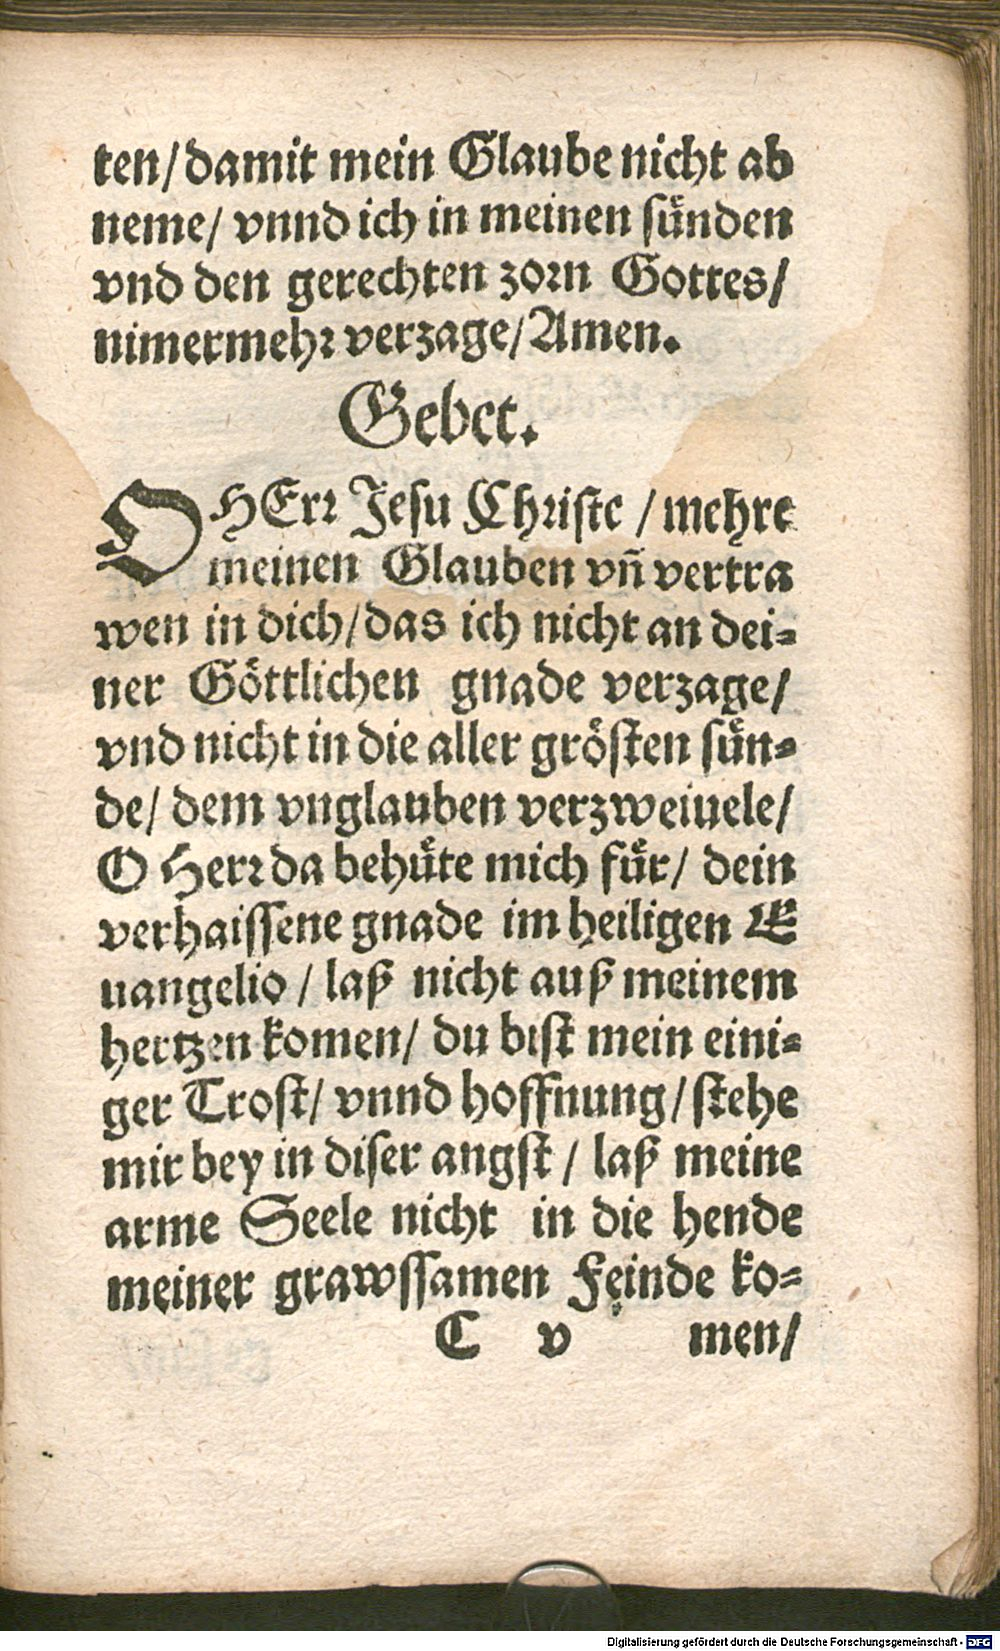 ten/ damit mein Glaube nicht ab
neme/ vnnd ich in meinen sünden
vnd den gerechten zorn Gottes/
nimermehr verzage/ Amen.
Gebet.
O HErr Jesu Christe / mehre
meinen Glauben vñ vertra
wen in dich/ das ich nicht an dei-
ner Göttlichen gnade verzage/
vnd nicht in die aller grösten sün-
de/ dem vnglauben verzweiuele/
O Herr da behüte mich für/ dein
verhaissene gnade im heiligen E
uangelio / laß nicht auß meinem
hertzen komen/ du bist mein eini-
ger Trost/ vnnd hoffnung/ stehe
mir bey in diser angst / laß meine
arme Seele nicht in die hende
meiner grawssamen Feinde ko-
C v men/
Digitalisierung gefördert durch die Deutsche Forschungsgemeinschaft - DFG